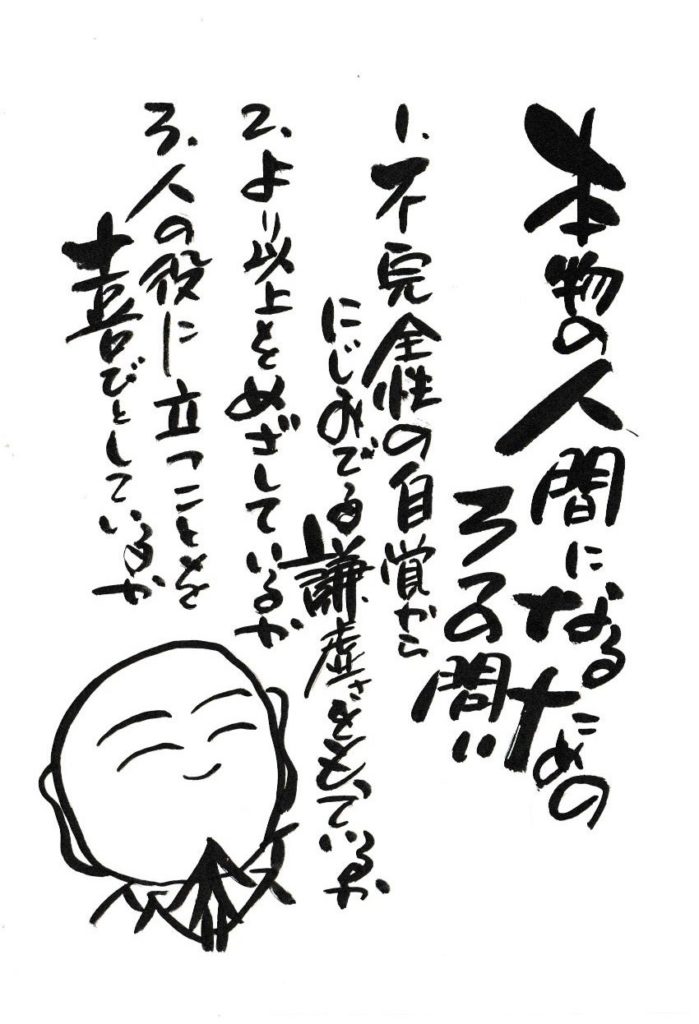 本物の人間になるための
3つの問い
1.不完全性の自覚から
にじみでる謙虚さをもっているか
2、より以上をめざしているか
3.人の役に立つことを
喜びとしているか